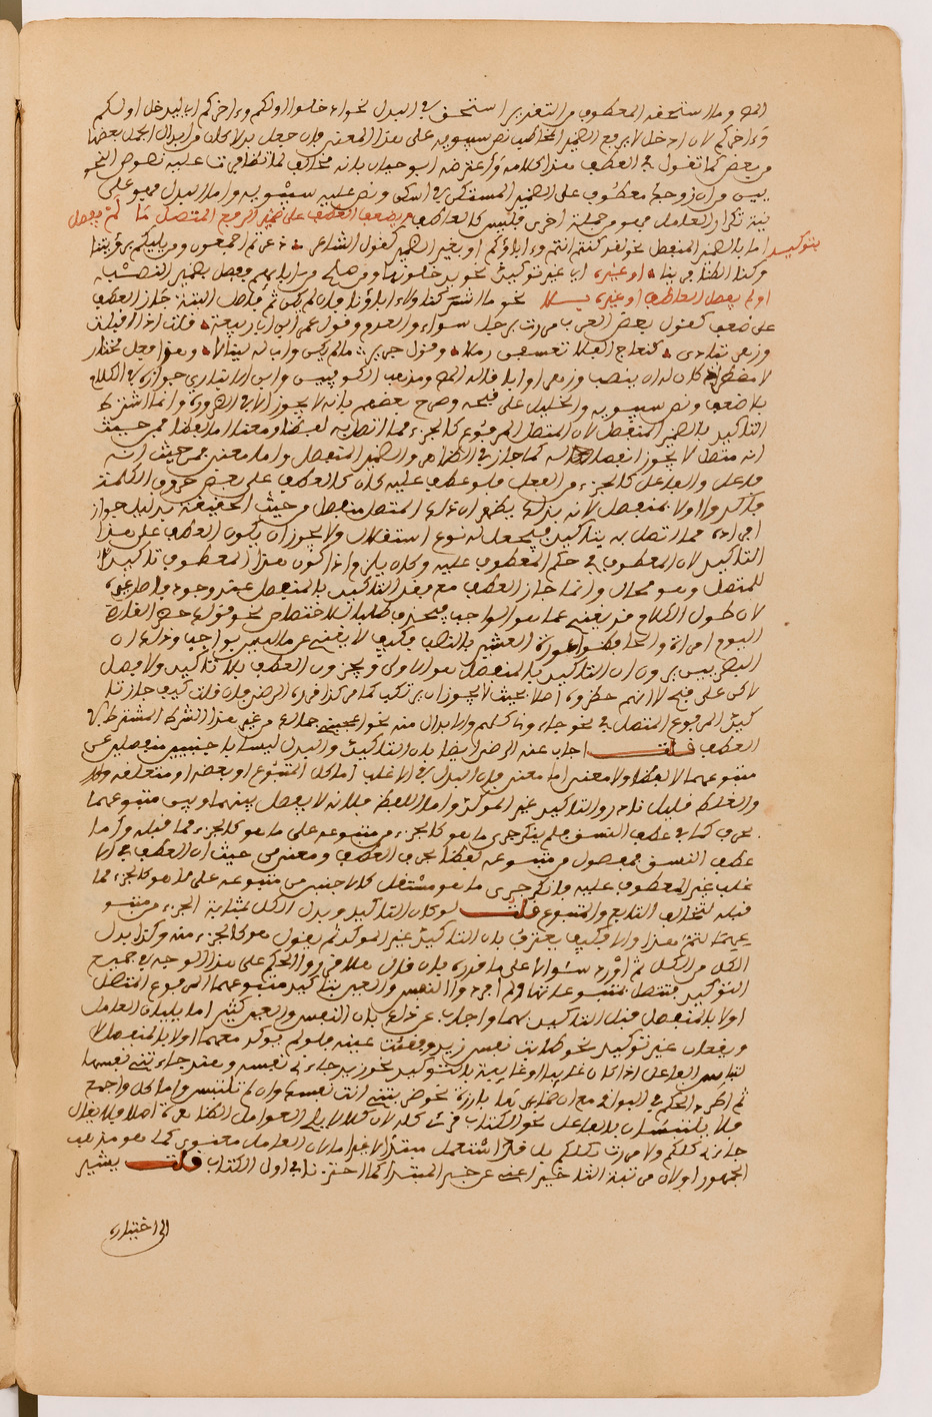 المص وما استحقه المعطوف والتقدير استحق في البدل نحو ادخلوا اولكم وءاخركم اي ليدخل اولكم
وءاخركم لان ادخل لا يرفع الضمير المخاطب نص سيبويه على هذا المعنى فان جعل بدلا كان من ابدال الجمل بعضها
من بعض كما تقول في العطف هذا كلامه واعترضه ابو حيان بانه مخالف لما تظافرت عليه نصوص النحو
يين من ان زوجك معطوف على الضمير المستكن في اسكن ونص عليه سيبويه واما البدل فهو على
نية تكرار العامل فهو من جملة اخرى فليس كالعاطف ويضعف العطف على ضمير الرفع المتصل ما لم يفصل
بتوكيد اما بالضمير المنفصل نحو لقد كنتم انتم وءاباؤكم او بغير الضمير كقول الشاعر ذعرتم اجمعون ومن يليكم برؤيتنا
وكنا الظافرينا او غيره اي غير توكيد نحو يدخلونها ومن صلح من ابائهم وفصل بضمير النصب
او لم يفصل العاطف او غيره بلا نحو ما اشركنا ولا ءاباؤنا فان لم يكن ثم فاصل البتة جاز العطف
على ضعف كقول بعض العرب مررت برجل سواء والعدم وقول عمر بن ابي ربيعة قلت اذ اقبلت
وزهر تهادى كنعاج الفلا تعسفن رملا وقول جرير ما لم يكن واب له لينالا وهذا فعل مختار
لا مضطر اذ كان له ان ينصب وزهر او ابا قاله المص ومذهب الكوفيين وابن الانباري جوازه في الكلام
بلا ضعف ونص سيبويه والخليل على قبحه وصرح بعضهم بانه لا يجوز الا في الضرورة وانما اشترط
التاكيد بالضمير المنفصل لان المتصل المرفوع كالجزء مما اتصل به لفظا ومعنى اما لفظا فمن حيث
انه متصل لا يجوز انفصاله كما جاز في الظاهر والضمير المنفصل واما معنى فمن حيث انه
فاعل والفاعل كالجزء من الفعل فلو عطف عليه كان كالعطف على بعض حروف الكلمة
فاكد اولا بمنفصل لانه بذلك يظهر ان ذلك المتصل منفصل من حيث الحقيقة بدليل جواز
افراده مما اتصل به بتاكيده فيحصل له نوع استقلال ولا يجوز ان يكون العطف على هذا
التاكيد لان المعطوف في حكم المعطوف عليه وكان يلزم اذا كون هذا المعطوف تاكيدا
للمتصل وهو محال وانما جاز العطف مع فقد التاكيد بالمنفصل عند وجود فاصل غيره
لان طول الكلام قد يغني عما هو الواجب فيحذف طلبا للاختصار نحو قولك حضر القاضي
اليوم امراة والحافظوا عورة العشيرة بالنصب فكيف لا يغني عما ليس بواجب وذلك ان
البصريين يرون ان التاكيد بالمنفصل هو الاولى ويجوزون العطف بلا تاكيد ولا فصل
لاكن على قبح لا انهم حظروه اصلا بحيث لا يجوز ان يرتكب كما مر كذا في الرضي فان قلت كيف جاز تا
كيد المرفوع المتصل في نحو جاءوني كلهم والابدال منه نحو اعجبتني جمالك من غير هذا الشرط المشترط في
العطف قلت اجاب عنه الرضي ايضا بان التاكيد والبدل ليسا باجنبيين منفصلين عن
متبوعهما لا لفظا ولا معنى اما معنى فلان البدل في الاغلب اما كل المتبوع او بعضه او متعلقه
والغلط قليل نادر والتاكيد عين الموكد واما لفظا فلانه لا يفصل بينهما وبين متبوعهما
بحرف كما في عطف النسق فلم ينكر جري ما هو كالجزء من متبوعه على ما هو كالجزء مما قبله واما
عطف النسق فمفصول من متبوعه لفظا بحرف العطف ومعنى من حيث ان العطف في الا
غلب غير المعطوف عليه فانكر جري ما هو مستقل كالاجنبي من متبوعه على ما هو كالجزء مما
قبله لتخالف التابع والمتبوع قلت لو كان التاكيد وبدل الكل بمثابة الجزء من متبو
عهما لتم هذا والا فكيف يعترف بان التاكيد عين الموكد ثم يقول هو كالجزء منه وكذا بدل
الكل من الكل ثم اورد سئوالا على ما قدره بان قال هلا قرروا الحكم على هذا الوجه في جميع
التوكيد فتتصل بمتبوعاتها ولم افردوا النفس والعين بتاكيد متبوعهما المرفوع المتصل
اولا بالمنفصل قبل التاكيد بهما واجاب عن ذلك بان النفس والعين كثيرا ما يليان العامل
ويقعان غير توكيد نحو طابت نفس زيد وفقئت عينه فلو لم يوكد معهما اولا بالمنفصل لا
لتبس الفاعل اذا كان غايبا او غايبة بالتوكيد نحو زيد جاءني نفسه وهند جاءتني نفسها
ثم اطرد الحكم في البواقي مع ان ضمايرها بارزة نحو ضربتني انت نفسك وان لم تلتبس واما كل واجمع
فلا يلتبسان بالفاعل نحو الكتاب قرئ كله لان كلا لا يلي العوامل الظاهرة اصلا فلا يقال
جاءني كلكم ولا مررت بكلكم بل قل استعمل مبتدأ لا غير اما لان العامل معنوي كما هو مذهب
الجمهور او لان مرتبة التاخير اعني عن خبر المبتدا كما احتررنا في اول الكتاب قلت يشير
الى اختياره